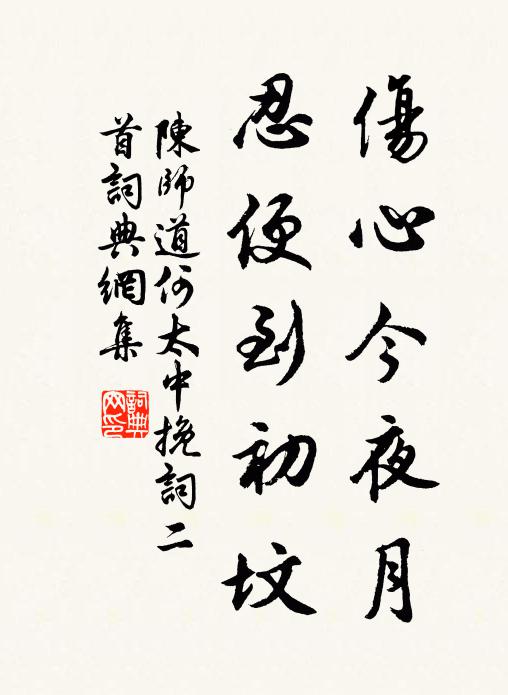 傷心今夜月
忍便到初墳
陳師道何太中挽詞二
首詞典網集
詞典
网印